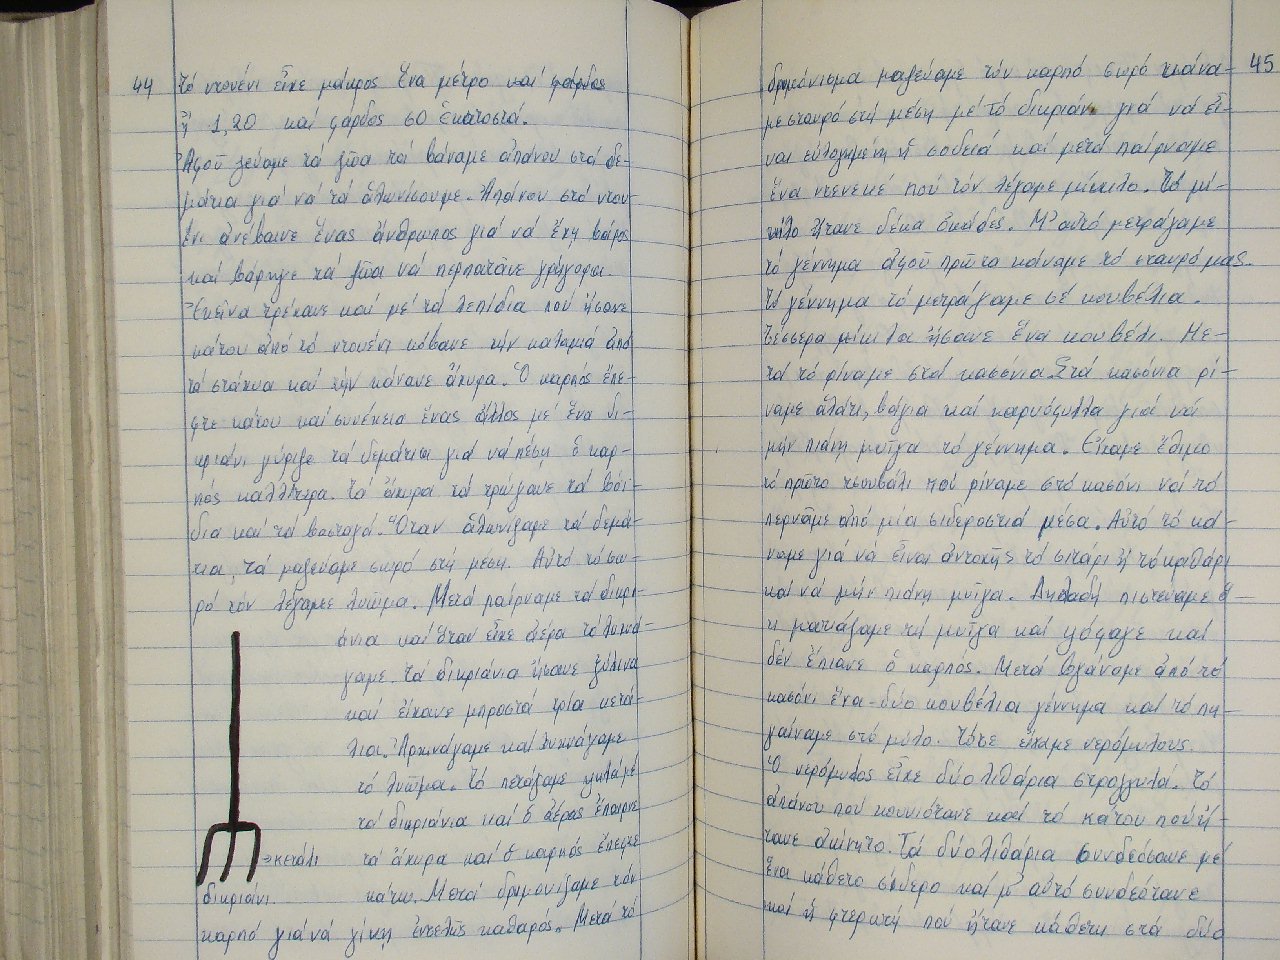 44
τό ντουένι εἶχε μάκρος ἕνα μέτρο καί φάρδος
ἤ 1,20 καί φάρδος 60 ἑκατοστά.
Ἀφοῦ ζεύαμε τά ζῶα τά βάναμε ἀπάνου στά δε-
μάτια γιά νά τά ἁλωνίσουμε. Ἀπάνου στό ντου-
ένι ἀνέβαινε ἕνας ἄνθρωπος γιά νά ἔχη βάρος
καί βάρηγε τά ζῶα νά περπατᾶνε γρήγορα.
Ἐκεῖνα τρέχανε καί μέ τά λεπίδια πού ἤσανε
κάτου ἀπό τό ντουένι κόβανε τήν καλαμιά ἀπό
τά στάχυα καί τήν κάνανε ἄχυρα. Ὁ καρπός ἔπε-
φτε κάτου καί συνέχεια ἕνας ἄλλος μέ ἕνα δι-
κριάνι γύριζε τά δεμάτια γιά νά πέση ὁ καρ-
πός καλλίτερα. Τά ἄχυρα τά τρώγανε τά βόι-
δια καί τά βασταγά. Ὅταν ἁλωνίζαμε τά δεμά-
τια, τά μαζεύαμε σωρό στή μέση. Αὐτό τό σω-
ρό τόν λέγαμε λυῶμα. Μετά παίρναμε τά δικρι-
άνια καί ὅταν εἶχε ἀέρα τό λυχνά-
γαμε. Τά δικριάνια ἤσανε ξύλινα
καί εἴχανε μπροστά τρία κετά-
λια. Ἀρχινάγαμε καί λυχνάγαμε
τό λυῶμα. Τό πετάγαμε ψηλά μέ
τά δικριάνια καί ὁ ἀέρας ἔπαιρνε
→κετάλι
τά ἄχυρα καί ὁ καρπός ἔπεφτε
δικριάνι
κάτω. Μετά δρημονίζαμε τόν
καρπό γιά νά γίνη ἐντελῶς καθαρός. Μετά τό
45
δρημόνισμα μαζεύαμε τόν καρπό σωρό κάνα-
με σταυρό στή μέση μέ τό δικριάνι γιά νά εἶ-
ναι εὐλογημένη ἡ σοδειά καί μετά παίρναμε
ἕνα ντενεκέ πού τόν λέγαμε μίκιλο. Τό μί-
κιλο ἤτανε δέκα ὀκάδες. Μ' αὐτό μετράγαμε
τό γέννημα ἀφοῦ πρῶτα κάναμε τό σταυρό μας.
Τό γέννημα τό μετράγαμε σέ κουβέλια.
Τέσσερα μίκιλα ἤσανε ἕνα κουβέλι. Με-
τά τό ρίναμε στά κασόνια. Στά κασόνια ρί-
ναμε ἁλάτι, βάγια καί καρυόφυλλα γιά νά
μήν πιάνη μυῖγα τό γέννημα. Εἴχαμε ἔθιμο
τό πρῶτο τσουβάλι πού ρίναμε στό κασόνι νά τό
περνᾶμε ἀπό μία σιδεροστιά μέσα. Αὐτό τό κά-
ναμε γιά νά εἶναι ἀντοχῆς τό σιτάρι ἤ τό κριθάρι
καί νά μήν πιάνη μυῖγα. Δηλαδή πιστεύαμε ὅ-
τι ματιάζαμε τή μυῖγα καί ψόφαγε καί
δέν ἔπιανε ὁ καρπός. Μετά βγάναμε ἀπό τό
κασόνι ἕνα-δύο κουβέλια γέννημα καί τό πη-
γαίναμε στό μύλο. Τότε εἴχαμε νερόμυλους.
Ὁ νερόμυλος εἶχε δύο λιθάρια στρογγυλά. Τό
ἀπάνου πού κουνιότανε καί τό κάτου πού ἤ-
τανε ἀκίνητο. Τά δύο λιθάρια συνδεόσανε μέ
ἕνα κάθετο σίδερο καί μ' αὐτό συνδεότανε
καί ἡ φτερωτή πού ἤτανε κάθετη στά δύο